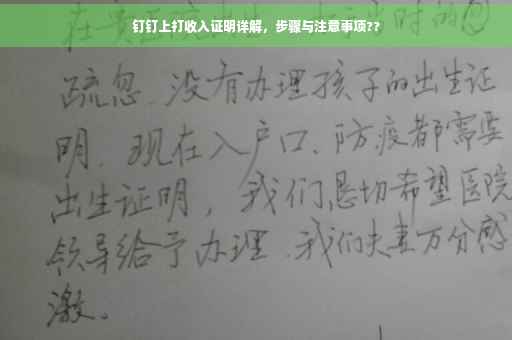 钉钉上打收入证明详解，步骤与注意事项??
在 当时的
疏忽、没有办理孩子的出生证
明、现在入户口、防疫都需要
出生证明，我们恳切希望医院
领导给予办理、我们夫妻万分感
激。